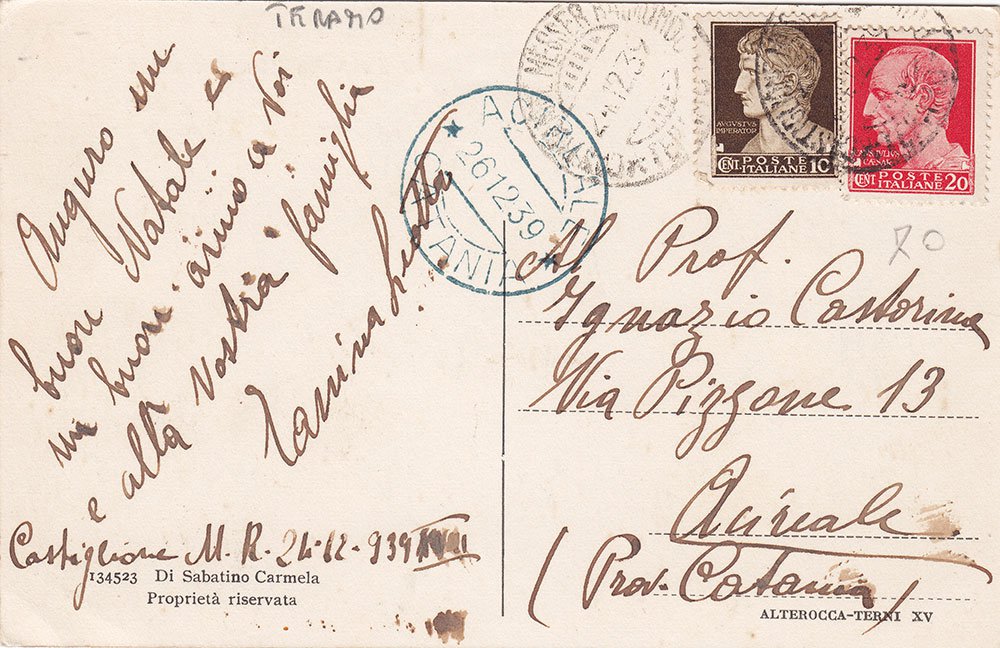 TERAMO
Auguro un
buon Natale e
un buon anno a Voi
e alla Vostra famiglia
Castiglione M. R. 24-12-939 XVIII
134523 Di Sabatino Carmela
Proprietà riservata
ACIREALE
26 12 39
CATANIA
AUGUSTUS
IMPERATOR
CENT. POSTE ITALIANE 10
CAESAR
CENT. POSTE ITALIANE 20
70
Al Prof.
Ignazio Castorina
Via Pizzone 13
Acireale
(Prov. Catania)
ALTEROCCA-TERNI XV